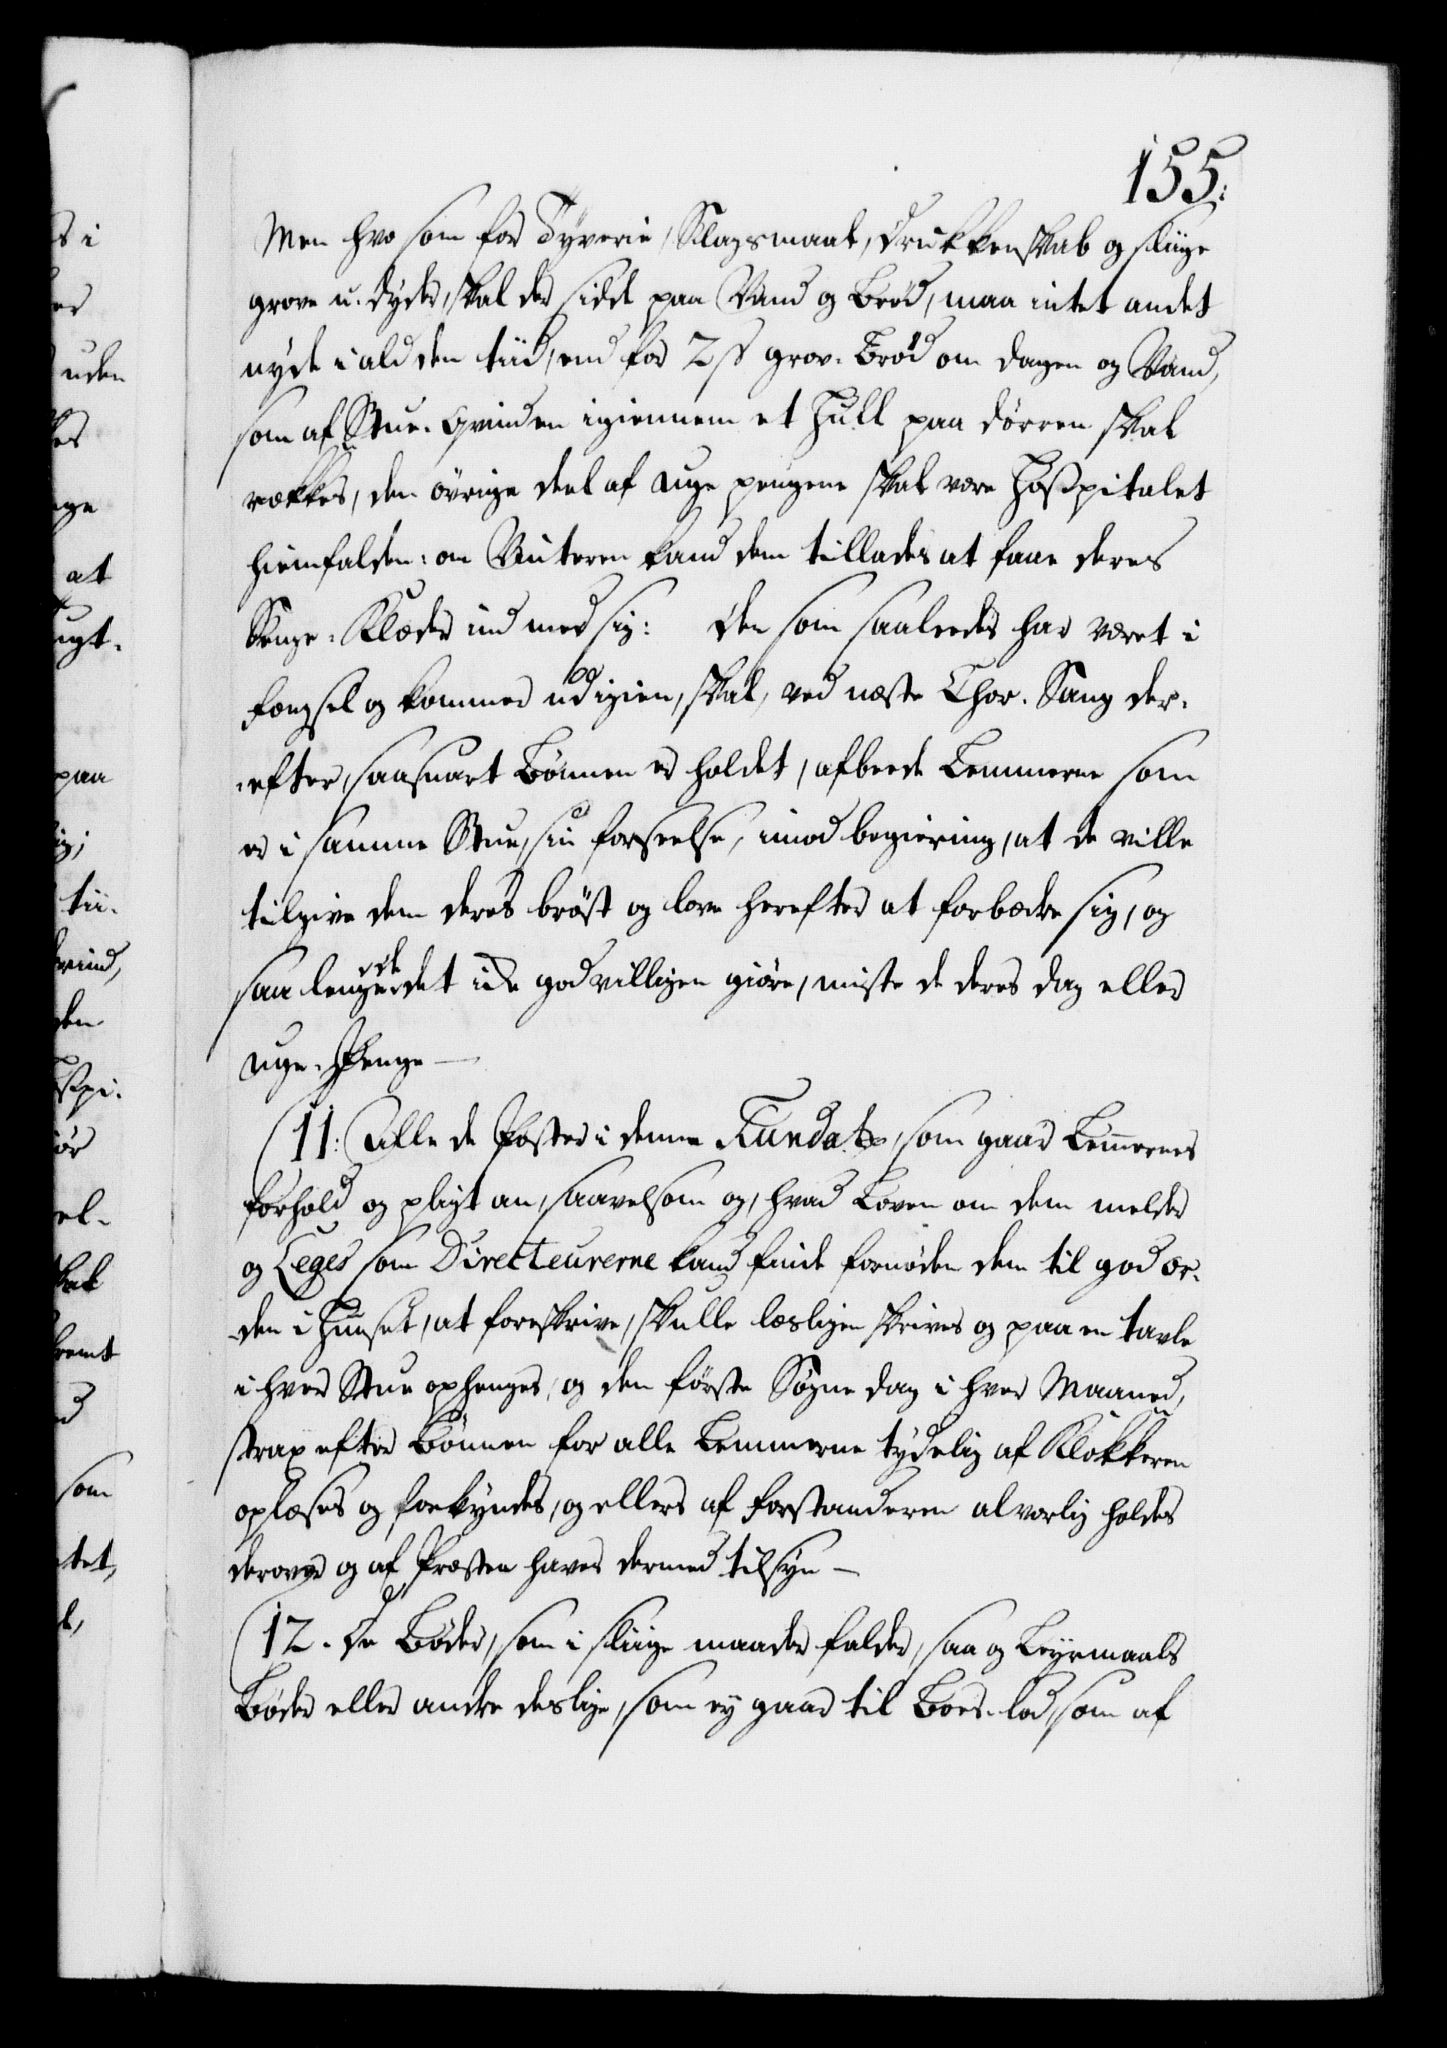 155:
Men hvo som for Tyverie, Slagsmaal, Drukkenskab og slige
grove u-dyder, skal der sidde paa Vand og Brød, maa intet andet
nyde i ald den tiid, end for 2 s grov-Brød om dagen og Vand,
som af Stue-Qvinden igiennem et Hull paa dørren skal
rækkes, den øvrige deel af uge pengene skal være Hospitalet
hiemfalden: om Vinteren kand dem tillades at faae deres
Senge-Klæder ind med sig: Den som saaledes har været i
fængsel og kommer ud igien, skal, ved næste Chor-Sang der-
efter, saasnart Bønnen er holdet, afbeede Lemmerne som
er i samme Stue, sin forseelse, imod begiering, at de ville
tilgive dem deres brøst og love herefter at forbædre sig, og
saa lenge de det icke godvilligen giøre, miste de deres dag eller
uge-Penge —
11: Alle de Poster i denne Fundatz, som gaar Lemmernes
forhold og pligt an, saavelsom og, hvad Loven om dem melder
og Leges som Directeurerne kand finde fornøden dem til god or-
den i Huuset, at foreskrive, skulle læsligen skrives og paa en tavle
i hver Stue ophenges, og den første Søgne dag i hver Maaned,
strax efter Bønnen for alle Lemmerne tydelig af Klokkeren
oplæses og forkyndes, og ellers af Forstanderen alvorlig holdes
derover og af Præsten haves dermed tilsyn —
12. De Bøder, som i slige maader falder, saa og Leyermaals
Bøder eller andre deslige, som ey gaar til Boes-lod, som af
s i
uden
at
ugt-
paa
tii-
den
spi-
ør
el-
som
tet,